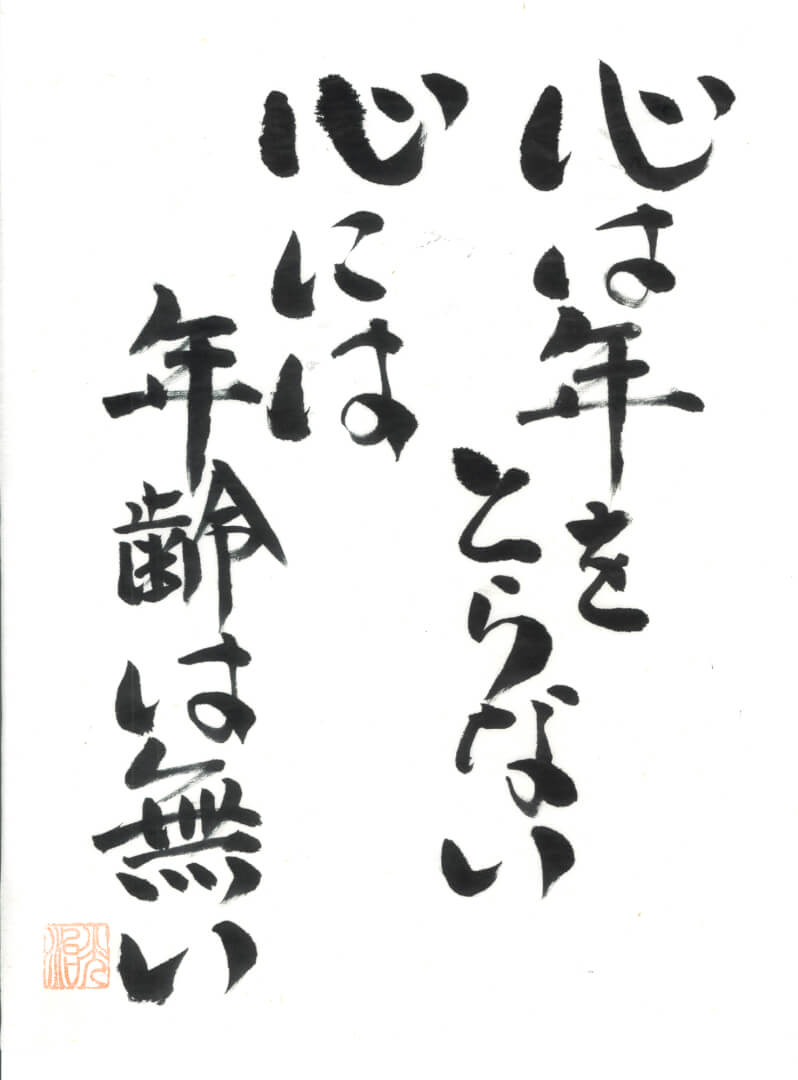 心は年を
とらない
心には
年齢は無い